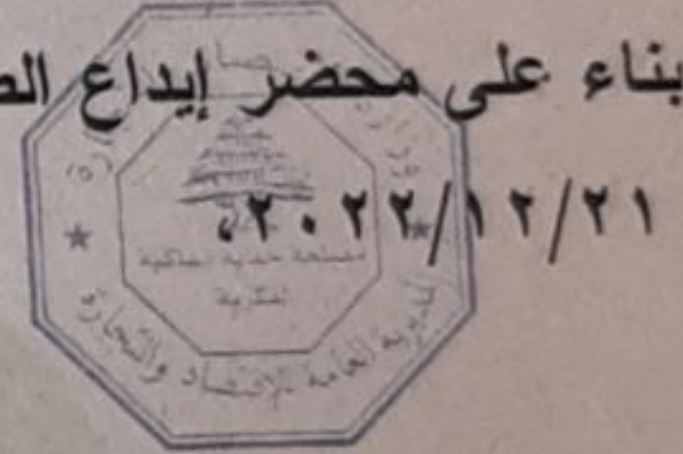 بناء على محضر إيداع الط
٢٠٢٢/١٢/٢١،
مصلحة حماية الملكية
الفكرية
المديرية العامة للاقتصاد والتجارة